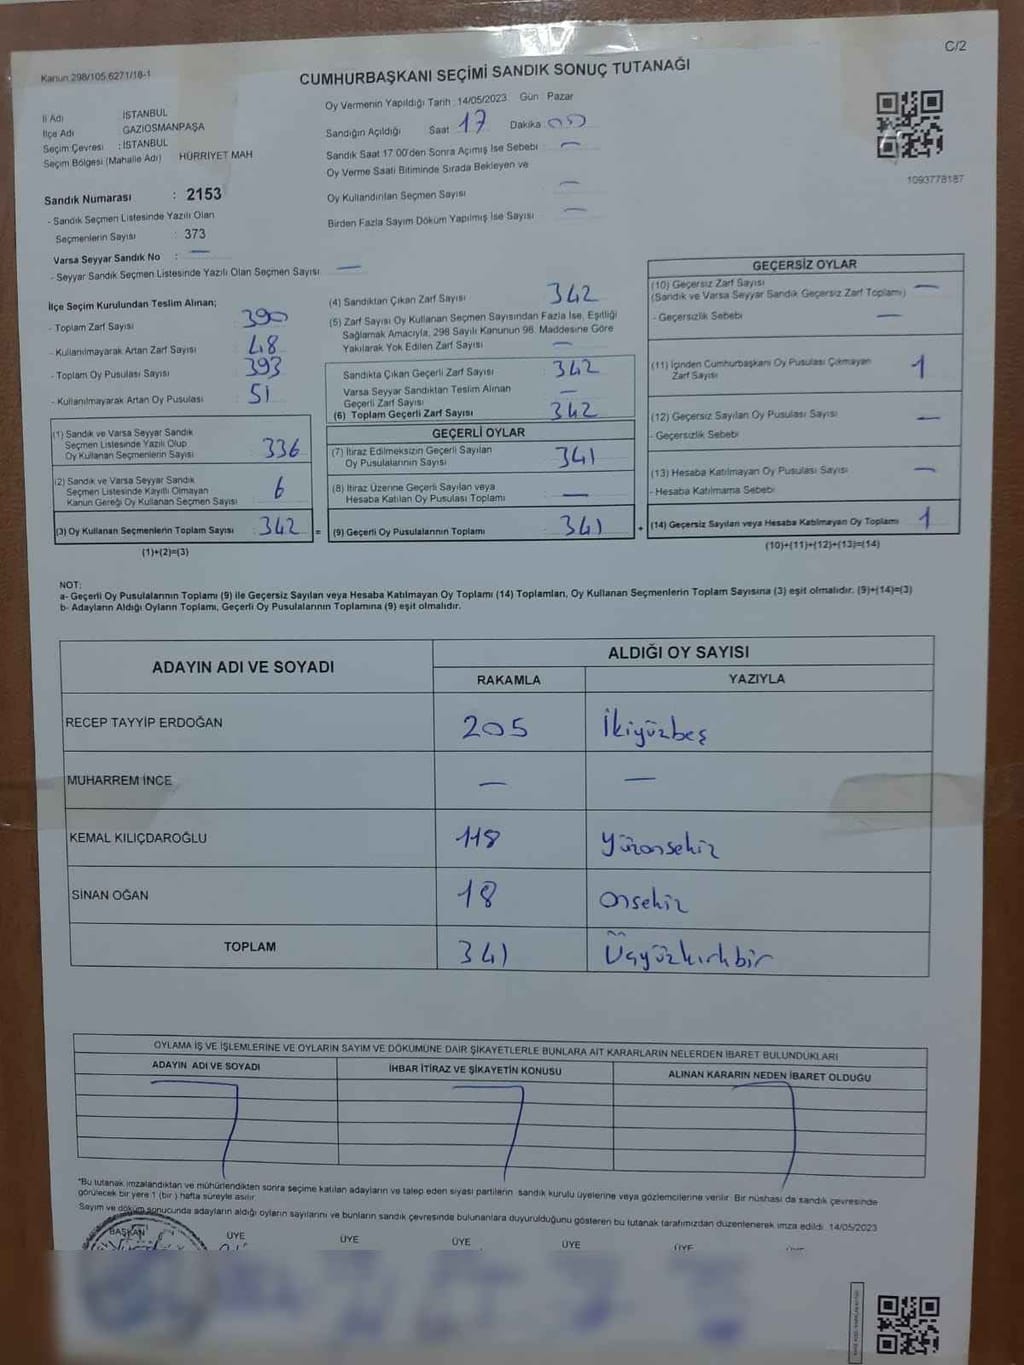 C/2
Kanun 298/105,6271/18-1
CUMHURBAŞKANI SEÇİMİ SANDIK SONUÇ TUTANAĞI
Oy Vermenin Yapıldığı Tarih : 14/05/2023 Gün : Pazar
İl Adı İSTANBUL
İlçe Adı GAZİOSMANPAŞA
Seçim Çevresi : İSTANBUL
Seçim Bölgesi (Mahalle Adı) HÜRRİYET MAH
Sandığın Açıldığı Saat 17 Dakika 00
Sandık Saat 17:00'den Sonra Açımış İse Sebebi —
Oy Verme Saati Bitiminde Sırada Bekleyen ve
Oy Kullandırılan Seçmen Sayısı —
Birden Fazla Sayım Döküm Yapılmış İse Sayısı —
1093778187
Sandık Numarası : 2153
- Sandık Seçmen Listesinde Yazılı Olan
Seçmenlerin Sayısı : 373
Varsa Seyyar Sandık No : —
- Seyyar Sandık Seçmen Listesinde Yazılı Olan Seçmen Sayısı —
İlçe Seçim Kurulundan Teslim Alınan;
- Toplam Zarf Sayısı 390
- Kullanılmayarak Artan Zarf Sayısı 48
- Toplam Oy Pusulası Sayısı 393
- Kullanılmayarak Artan Oy Pusulası 51
(1) Sandık ve Varsa Seyyar Sandık
Seçmen Listesinde Yazılı Olup
Oy Kullanan Seçmenlerin Sayısı 336
(2) Sandık ve Varsa Seyyar Sandık
Seçmen Listesinde Kayıtlı Olmayan
Kanun Gereği Oy Kullanan Seçmen Sayısı 6
(3) Oy Kullanan Seçmenlerin Toplam Sayısı 342 =
(1)+(2)=(3)
(4) Sandıktan Çıkan Zarf Sayısı 342
(5) Zarf Sayısı Oy Kullanan Seçmen Sayısından Fazla İse, Eşitliği
Sağlamak Amacıyla, 298 Sayılı Kanunun 98. Maddesine Göre
Yakılarak Yok Edilen Zarf Sayısı —
Sandıkta Çıkan Geçerli Zarf Sayısı 342
Varsa Seyyar Sandıktan Teslim Alınan
Geçerli Zarf Sayısı —
(6) Toplam Geçerli Zarf Sayısı 342
GEÇERLİ OYLAR
(7) İtiraz Edilmeksizin Geçerli Sayılan
Oy Pusulalarının Sayısı 341
(8) İtiraz Üzerine Geçerli Sayılan veya
Hesaba Katılan Oy Pusulası Toplamı —
(9) Geçerli Oy Pusulalarının Toplamı 341 +
GEÇERSİZ OYLAR
(10) Geçersiz Zarf Sayısı
(Sandık ve Varsa Seyyar Sandık Geçersiz Zarf Toplamı) —
- Geçersizlik Sebebi —
(11) İçinden Cumhurbaşkanı Oy Pusulası Çıkmayan
Zarf Sayısı 1
(12) Geçersiz Sayılan Oy Pusulası Sayısı —
- Geçersizlik Sebebi
(13) Hesaba Katılmayan Oy Pusulası Sayısı —
- Hesaba Katılmama Sebebi
(14) Geçersiz Sayılan veya Hesaba Katılmayan Oy Toplamı 1
(10)+(11)+(12)+(13)=(14)
NOT:
a- Geçerli Oy Pusulalarının Toplamı (9) ile Geçersiz Sayılan veya Hesaba Katılmayan Oy Toplamı (14) Toplamları, Oy Kullanan Seçmenlerin Toplam Sayısına (3) eşit olmalıdır. (9)+(14)=(3)
b- Adayların Aldığı Oyların Toplamı, Geçerli Oy Pusulalarının Toplamına (9) eşit olmalıdır.
ADAYIN ADI VE SOYADI ALDIĞI OY SAYISI
RAKAMLA YAZIYLA
RECEP TAYYİP ERDOĞAN 205 İkiyüzbeş
MUHARREM İNCE — —
KEMAL KILIÇDAROĞLU 118 Yüzonsekiz
SİNAN OĞAN 18 Onsekiz
TOPLAM 341 Üçyüzkırkbir
OYLAMA İŞ VE İŞLEMLERİNE VE OYLARIN SAYIM VE DÖKÜMÜNE DAİR ŞİKAYETLERLE BUNLARA AİT KARARLARIN NELERDEN İBARET BULUNDUKLARI
ADAYIN ADI VE SOYADI İHBAR İTİRAZ VE ŞİKAYETİN KONUSU ALINAN KARARIN NEDEN İBARET OLDUĞU
*Bu tutanak imzalandıktan ve mühürlendikten sonra seçime katılan adayların ve talep eden siyasi partilerin sandık kurulu üyelerine veya gözlemcilerine verilir. Bir nüshası da sandık çevresinde
görülecek bir yere 1 (bir ) hafta süreyle asılır.
Sayım ve döküm sonucunda adayların aldığı oyların sayılarını ve bunların sandık çevresinde bulunanlara duyurulduğunu gösteren bu tutanak tarafımızdan düzenlenerek imza edildi. 14/05/2023
BAŞKAN ÜYE ÜYE ÜYE ÜYE ÜYE